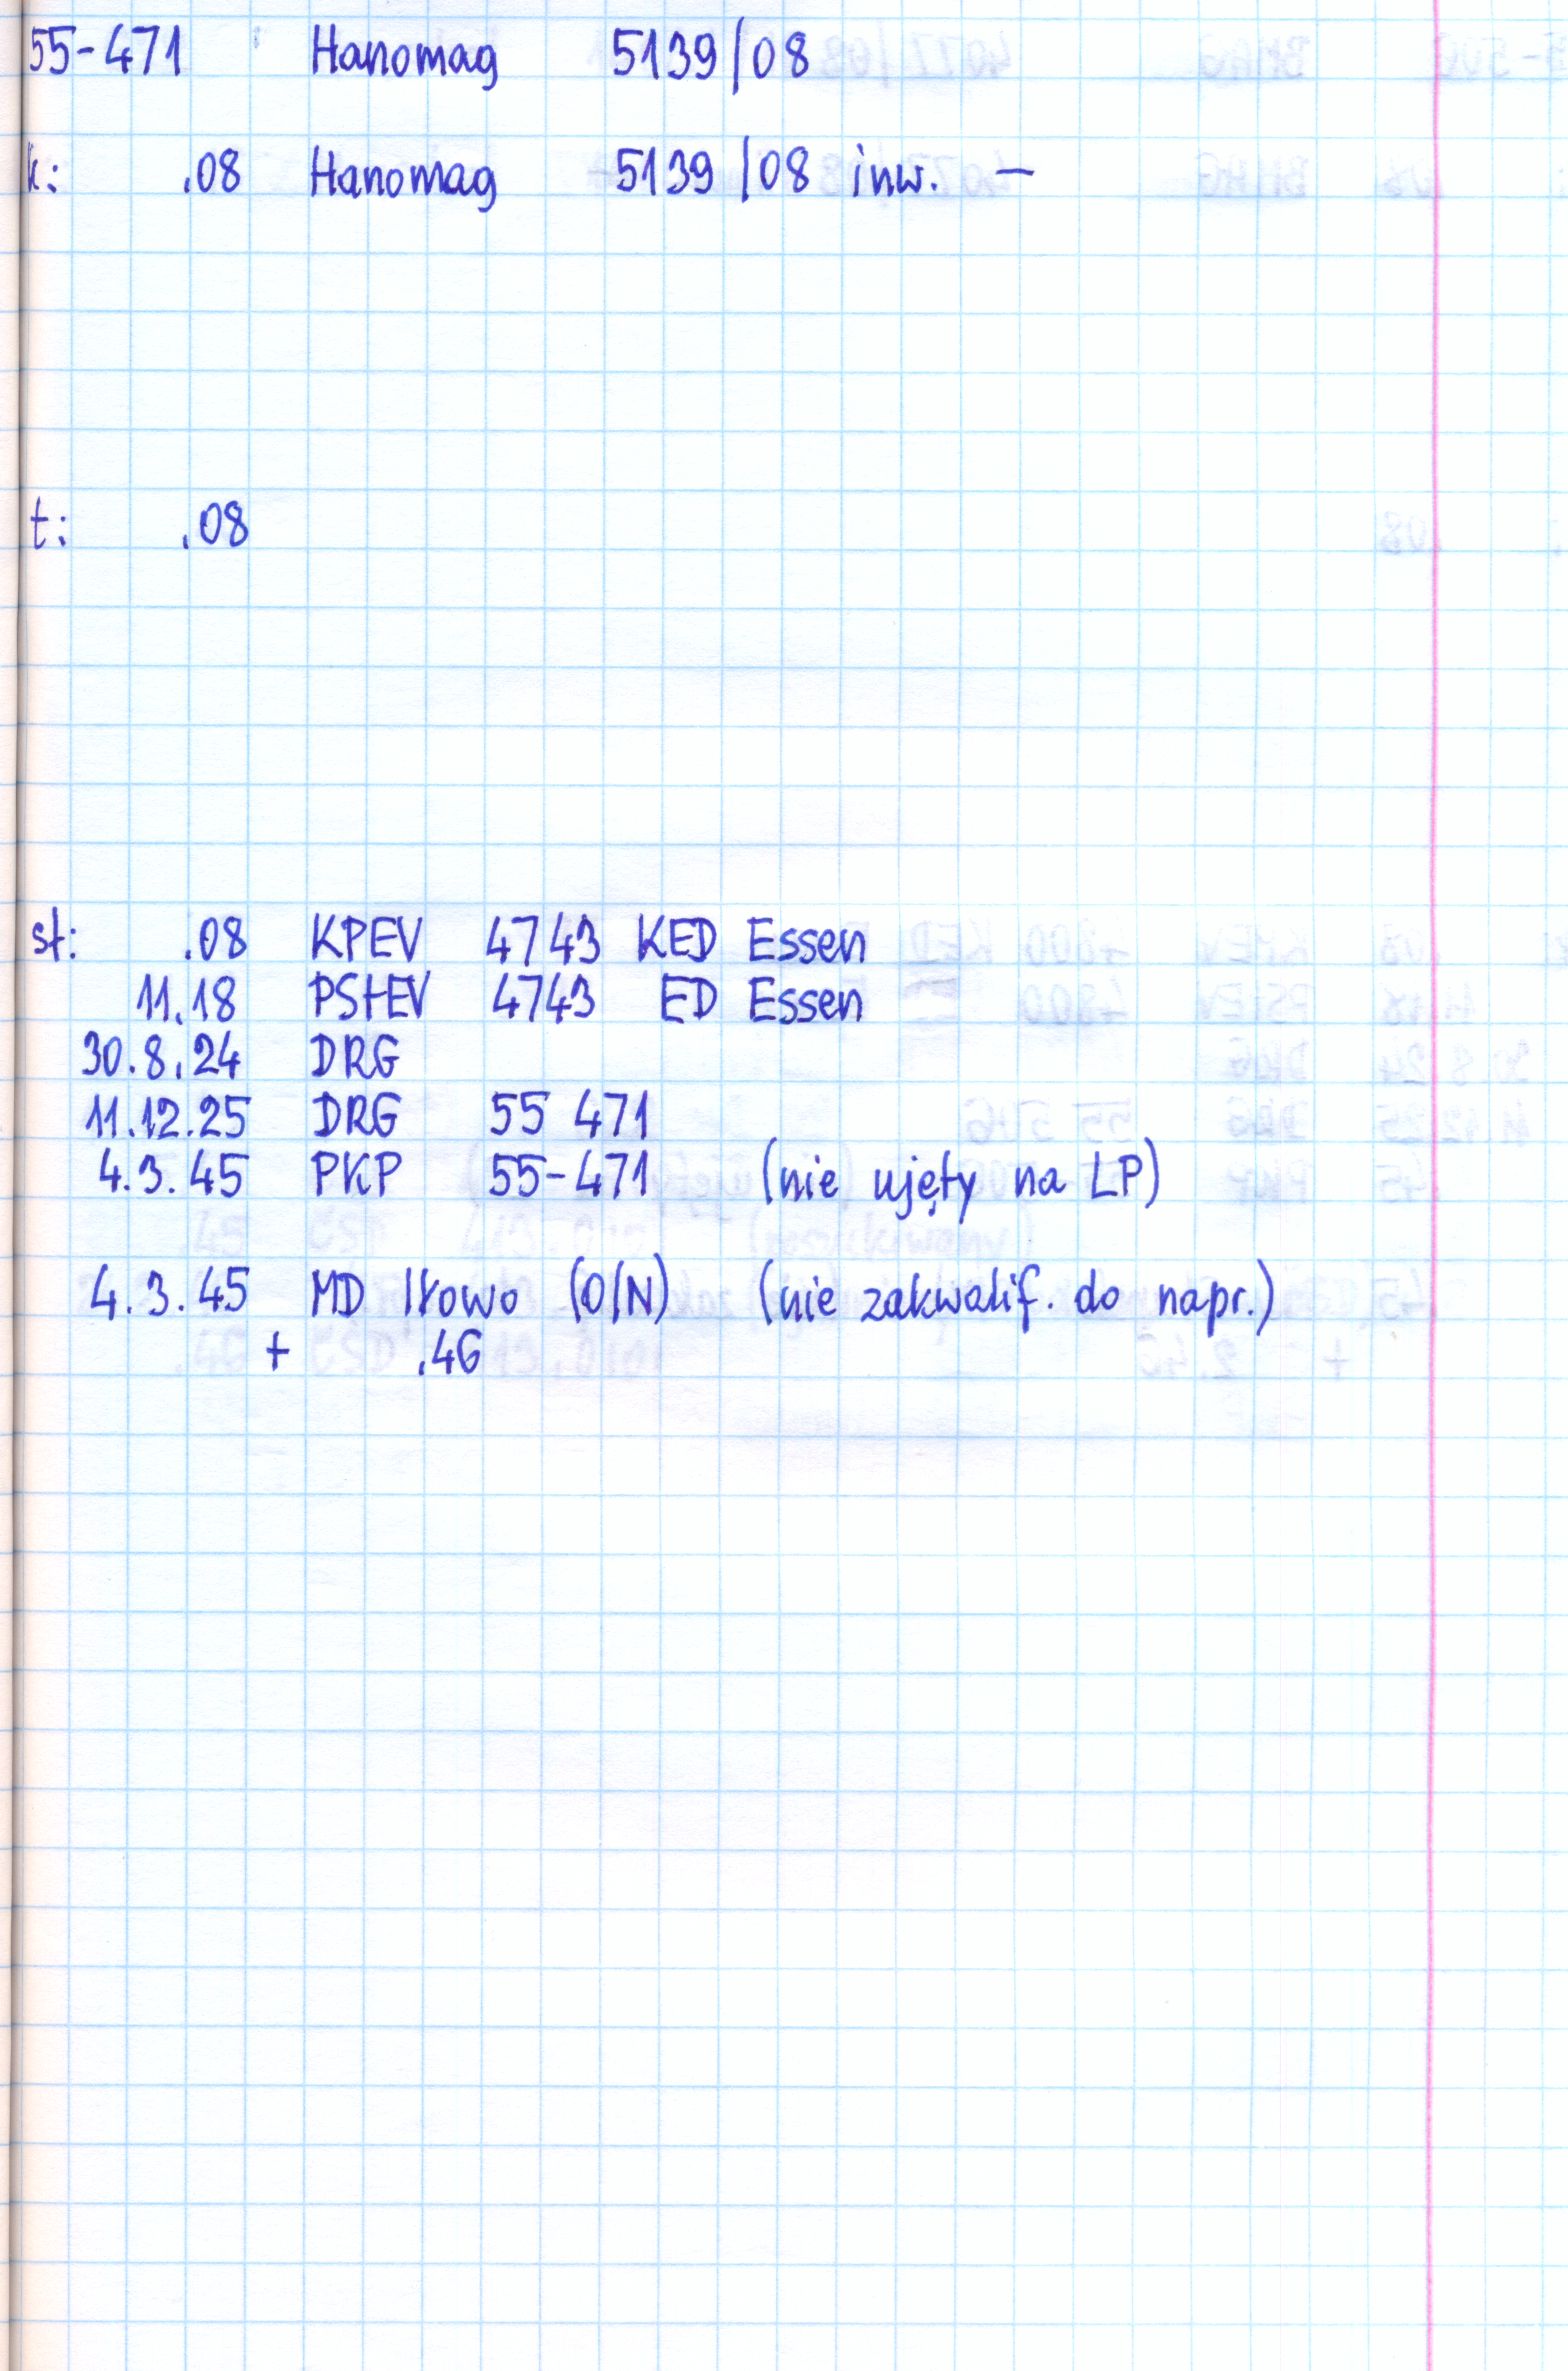 55-471 Hanomag 5139/08
k: .08 Hanomag 5139/08 inw. —
t: .08
st: .08 KPEV 4743 KED Essen
11.18 PStEV 4743 ED Essen
30.8.24 DRG
11.12.25 DRG 55 471
4.3.45 PKP 55-471 (nie ujęty na LP)
4.3.45 MD Iłowo (O/N) (nie zakwalif. do napr.)
+ .46